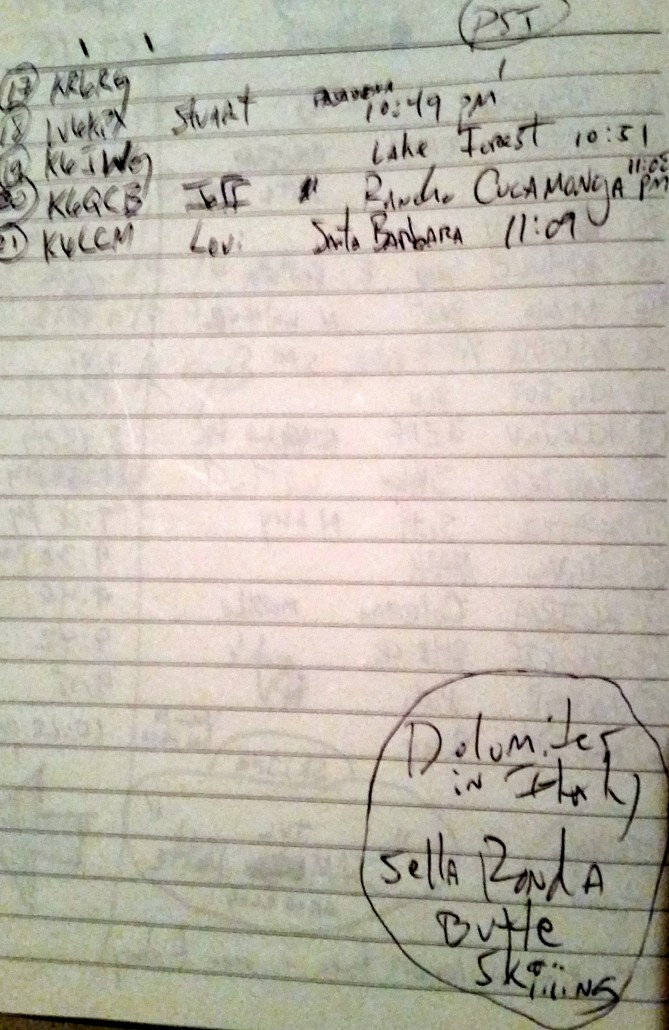 PST
17 KR6RG
18 Stuart PASADENA 10:49 PM
19 Lake Forest 10:51
20 K6QCB Jeff Rancho CUCAMONGA 11:05 PM
21 K4LCM Levi Santa BARBARA 11:09
Dolomites
in Italy
Sella RONDA
Butte
Skiiing